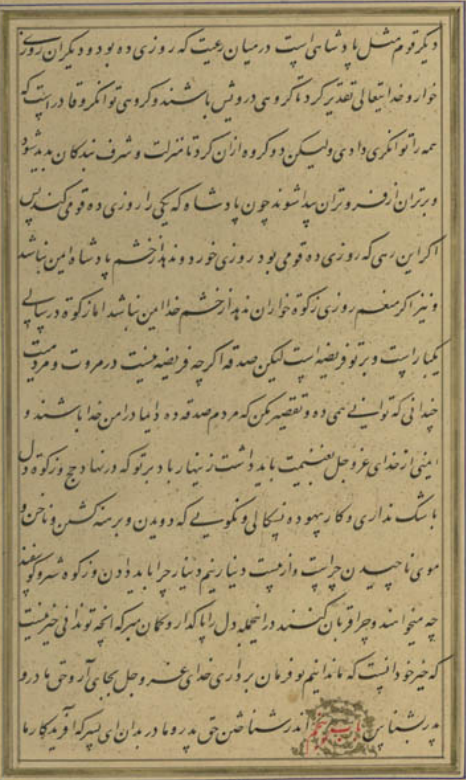 دیگر قوم مثل پادشاهی است در میان رعیت که روزی ده بود و دیگران روزی
خوار و خدایتعالی تقدیر کرد تا گروهی درویش باشند و گروهی توانگر و قادر است که
همه را توانگری دادی ولیکن دو گروه ازان کرد تا منزلت و شرف بندکان پدید شود
و برتران از فروتران پیدا شوند چون پادشاه که یکی را روزی ده قومی کند پس
اگر این رهی که روزی ده قومی بود روزی خورد و ندهد از خشم پادشاه امن نباشد
و نیز اگر منعم روزی زکوة خواران ندهد از خشم خدا امن نباشد اما زکوة در سالی
یکبار است و بر تو فریضه است لیکن صدقه اگرچه فریضه نیست در مروت و مردمیست
چندانی که توانی می ده و تقصیر مکن که مردم صدقه ده دایما در امن خدا باشند و
امنی از خدای عزوجل بغنیمت باید داشت زینهار باد بر تو که در نهاد حج و زکوة دل
با شک نداری و کار بیهوده نسکالی و نگویی که دویدن و برهنه گشتن و ناخن و
موی ناچیدن چراست و از بیست دینار نیم دینار چرا باید دادن و ز کوه شتر و گوسفند
چه میخواهند و چرا قربان کنند در اینجمله دل را پاک دار و گمان مبر که آنچه تو ندانی خیر نیست
که خیر خود آنست که ما ندانیم تو فرمان برداری خدای عزوجل بجای آر و حق مادر و
پدر بشناس باب پنجم اندر شناختن حق پدر و مادر بدان ای پسر که آفریدکار ما